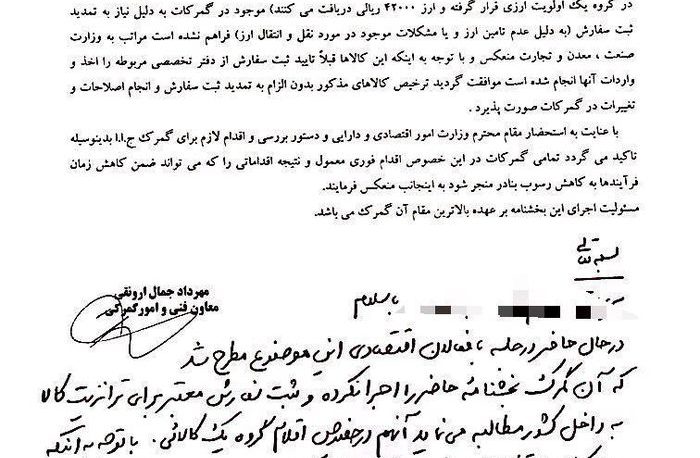 در گروه یک اولویت ارزی قرار گرفته و ارز ۴۲۰۰۰ ریالی دریافت می کنند) موجود در گمرکات به دلیل نیاز به تمدید
ثبت سفارش (به دلیل عدم تامین ارز و یا مشکلات موجود در مورد نقل و انتقال ارز) فراهم نشده است مراتب به وزارت
صنعت ، معدن و تجارت منعکس و با توجه به اینکه این کالاها قبلاً تایید ثبت سفارش از دفتر تخصصی مربوطه را اخذ و
واردات آنها انجام شده است موافقت گردید ترخیص کالاهای مذکور بدون الزام به تمدید ثبت سفارش و انجام اصلاحات و
تغییرات در گمرکات صورت پذیرد .
با عنایت به استحضار مقام محترم وزارت امور اقتصادی و دارایی و دستور بررسی و اقدام لازم برای گمرک ج.ا.ا بدینوسیله
تاکید می گردد تمامی گمرکات در این خصوص اقدام فوری معمول و نتیجه اقداماتی را که می تواند ضمن کاهش زمان
فرآیندها به کاهش رسوب بنادر منجر شود به اینجانب منعکس فرمایند.
مسئولیت اجرای این بخشنامه بر عهده بالاترین مقام آن گمرک می باشد.
بسمه تعالی
مهرداد جمال ارونقی
معاون فنی و امور گمرکی
با سلام
در حال حاضر در جلسه با فعالان اقتصادی این موضوع مطرح شد
که آن گمرک بخشنامه حاضر را اجرا نکرده و ثبت سفارش معتبر برای ترانزیت کالا
به داخل کشور مطالبه می نماید آنهم در خصوص اقلام گروه یک کالائی. با توجه به اینکه